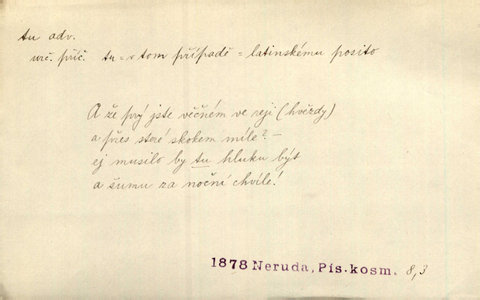 tu adv.
urč. příč. tu = v tom případě = latinskému posito
A že prý jste věčném ve reji (hvězdy)
a přes steré skokem míle? –
ej musilo by tu hluku být
a šumu za noční chvíle!
1878 Neruda, Pís. kosm. 8,3